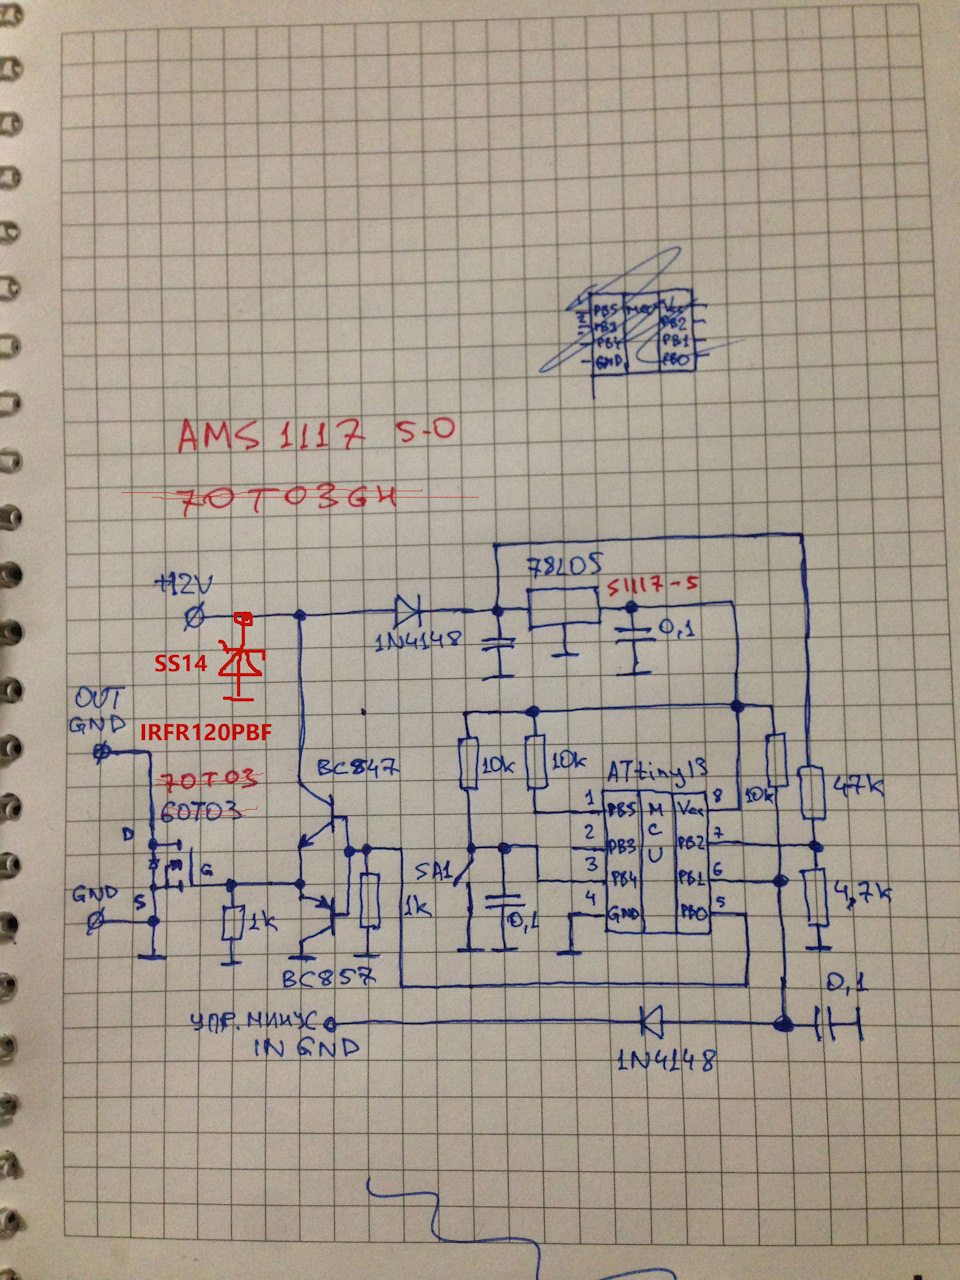 1 PB5 MCU Vcc
2 PB3 PB2
PB4 PB1
GND PB0
AMS 1117 5-0
70T03GH
+12V
78L05
S1117-5
1N4148
0,1
SS14
OUT
GND
IRFR120PBF
70T03
60T03
BC847
10k
10k
ATtiny13
10k
47k
1 PB5 M Vcc 8
2 PB3 C PB2 7
3 PB4 U PB1 6
4 GND PB0 5
D
G
S
GND
SA1
1k
1k
0,1
4,7k
BC857
0,1
УПР. МИНУС
IN GND
1N4148